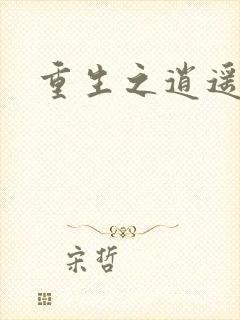 重生之逍遥
宋哲